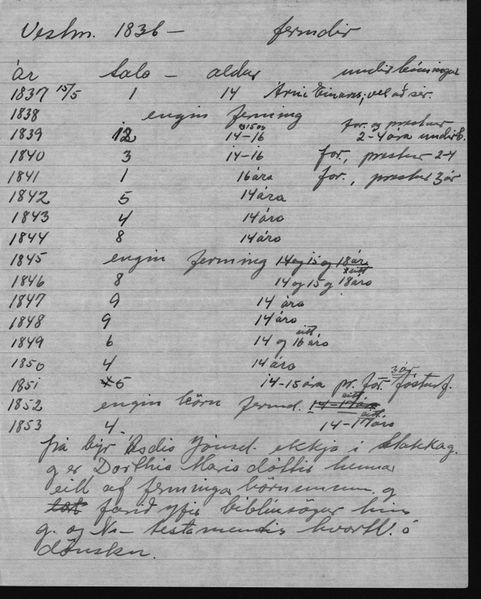 Vestm. 1836 — fermdir
ár tala — aldur undirbúningur
1837 15/5 1 14 Árni Einars, vel að sér.
1838 engin ferming
1839 12 14-16 for. og prestur 2-4 ára undirb.
1840 3 14-16 for., prestur 2-4
1841 1 16 ára for., prestur 3 ár
1842 5 14 ára
1843 4 14 ára
1844 8 14 ára
1845 engin ferming 14 og 15 og 18 ára
1846 8 14 og 15 og eitt 18 ára
1847 9 14 ára
1848 9 14 ára
1849 6 14 og eitt 16 ára
1850 4 14 ára
1851 5 14-15 ára pr. for. 3 ár fósturf.
1852 engin börn fermd. 14-17 ára
1853 4. 14-eitt 17 ára
þá býr Ásdís Jónsd. ekkja í Stakkag.
og er Dorthia Maria dóttir hennar
eitt af fermingarbörnunum og
farið yfir biblíusögur hin
g. og N- testamentis hvortt. á
dönsku.